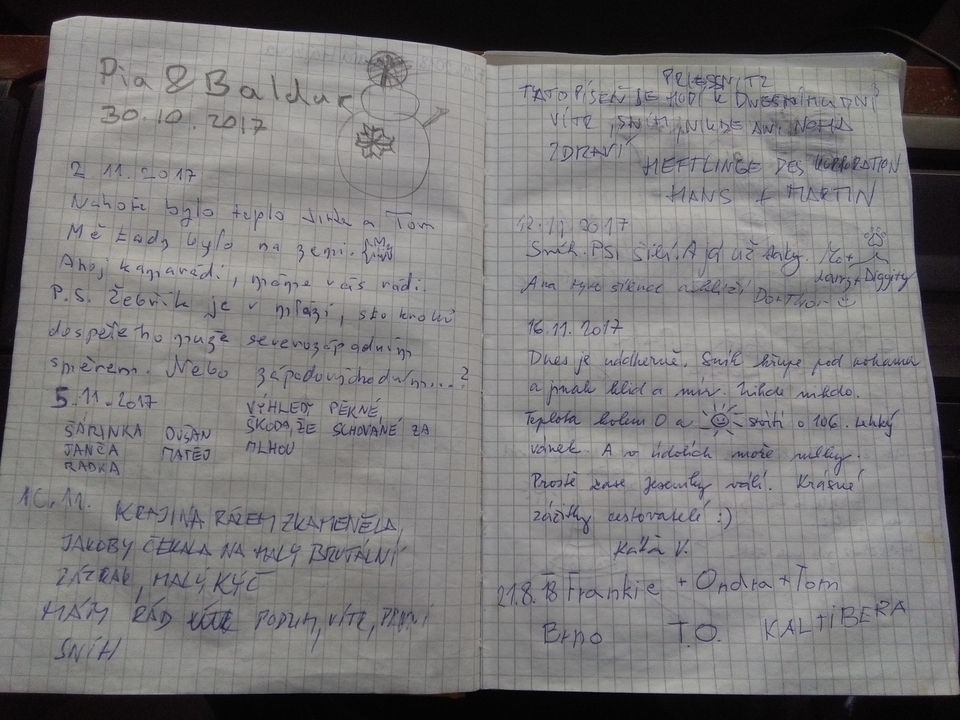 Pia & Baldur
30.10.2017
2 11.2017
Nahoře bylo teplo a Tom
Mě tady bylo na zemi.
Ahoj kamarádi, máme vás rádi.
P.S. Žebřík je v mlází, sto kroků
dospělého muže severozápadním
směrem. Nebo západovýchodním....?
5.11.2017
VÝHLEDY PĚKNÉ,
ŠKODA, ŽE SCHOVANÉ ZA
MLHOU
ŠÁRINKA DUŠAN
JANČA MATĚJ
RADKA
10.11. KRAJINA RÁZEM ZKAMENĚLA,
JAKOBY ČEKALA NA MALÝ BRUTÁLNÍ
ZÁZRAK, MALÝ KÝČ
MÁM RÁD PODZIM, VÍTR, PRVNÍ
SNÍH
PRIESSNITZ
TATO PÍSEŇ SE HODÍ K DNEŠNÍMU DNI
VÍTR, SNÍH, NIKDE ANI NOHA
ZDRAVÍ
HEFTLINGE DES KORPORATION
HANS + MARTIN
12.11.2017
Sníh. PSI šílí. A já už taky.
Larry + Diggity
16.11.2017
Dnes je nádherně. Sníh křupe pod nohama
a jinak klid a mír. Nikde nikdo.
Teplota kolem 0 a svítí o 106. Lehký
vánek. A v údolích moře mlhy.
Prostě zase Jeseníky válí. Krásné
zážitky cestovatelé :)
Káťa V.
21.8.18 Frankie + Ondra + Tom
Brno T.O. KALTIBERA